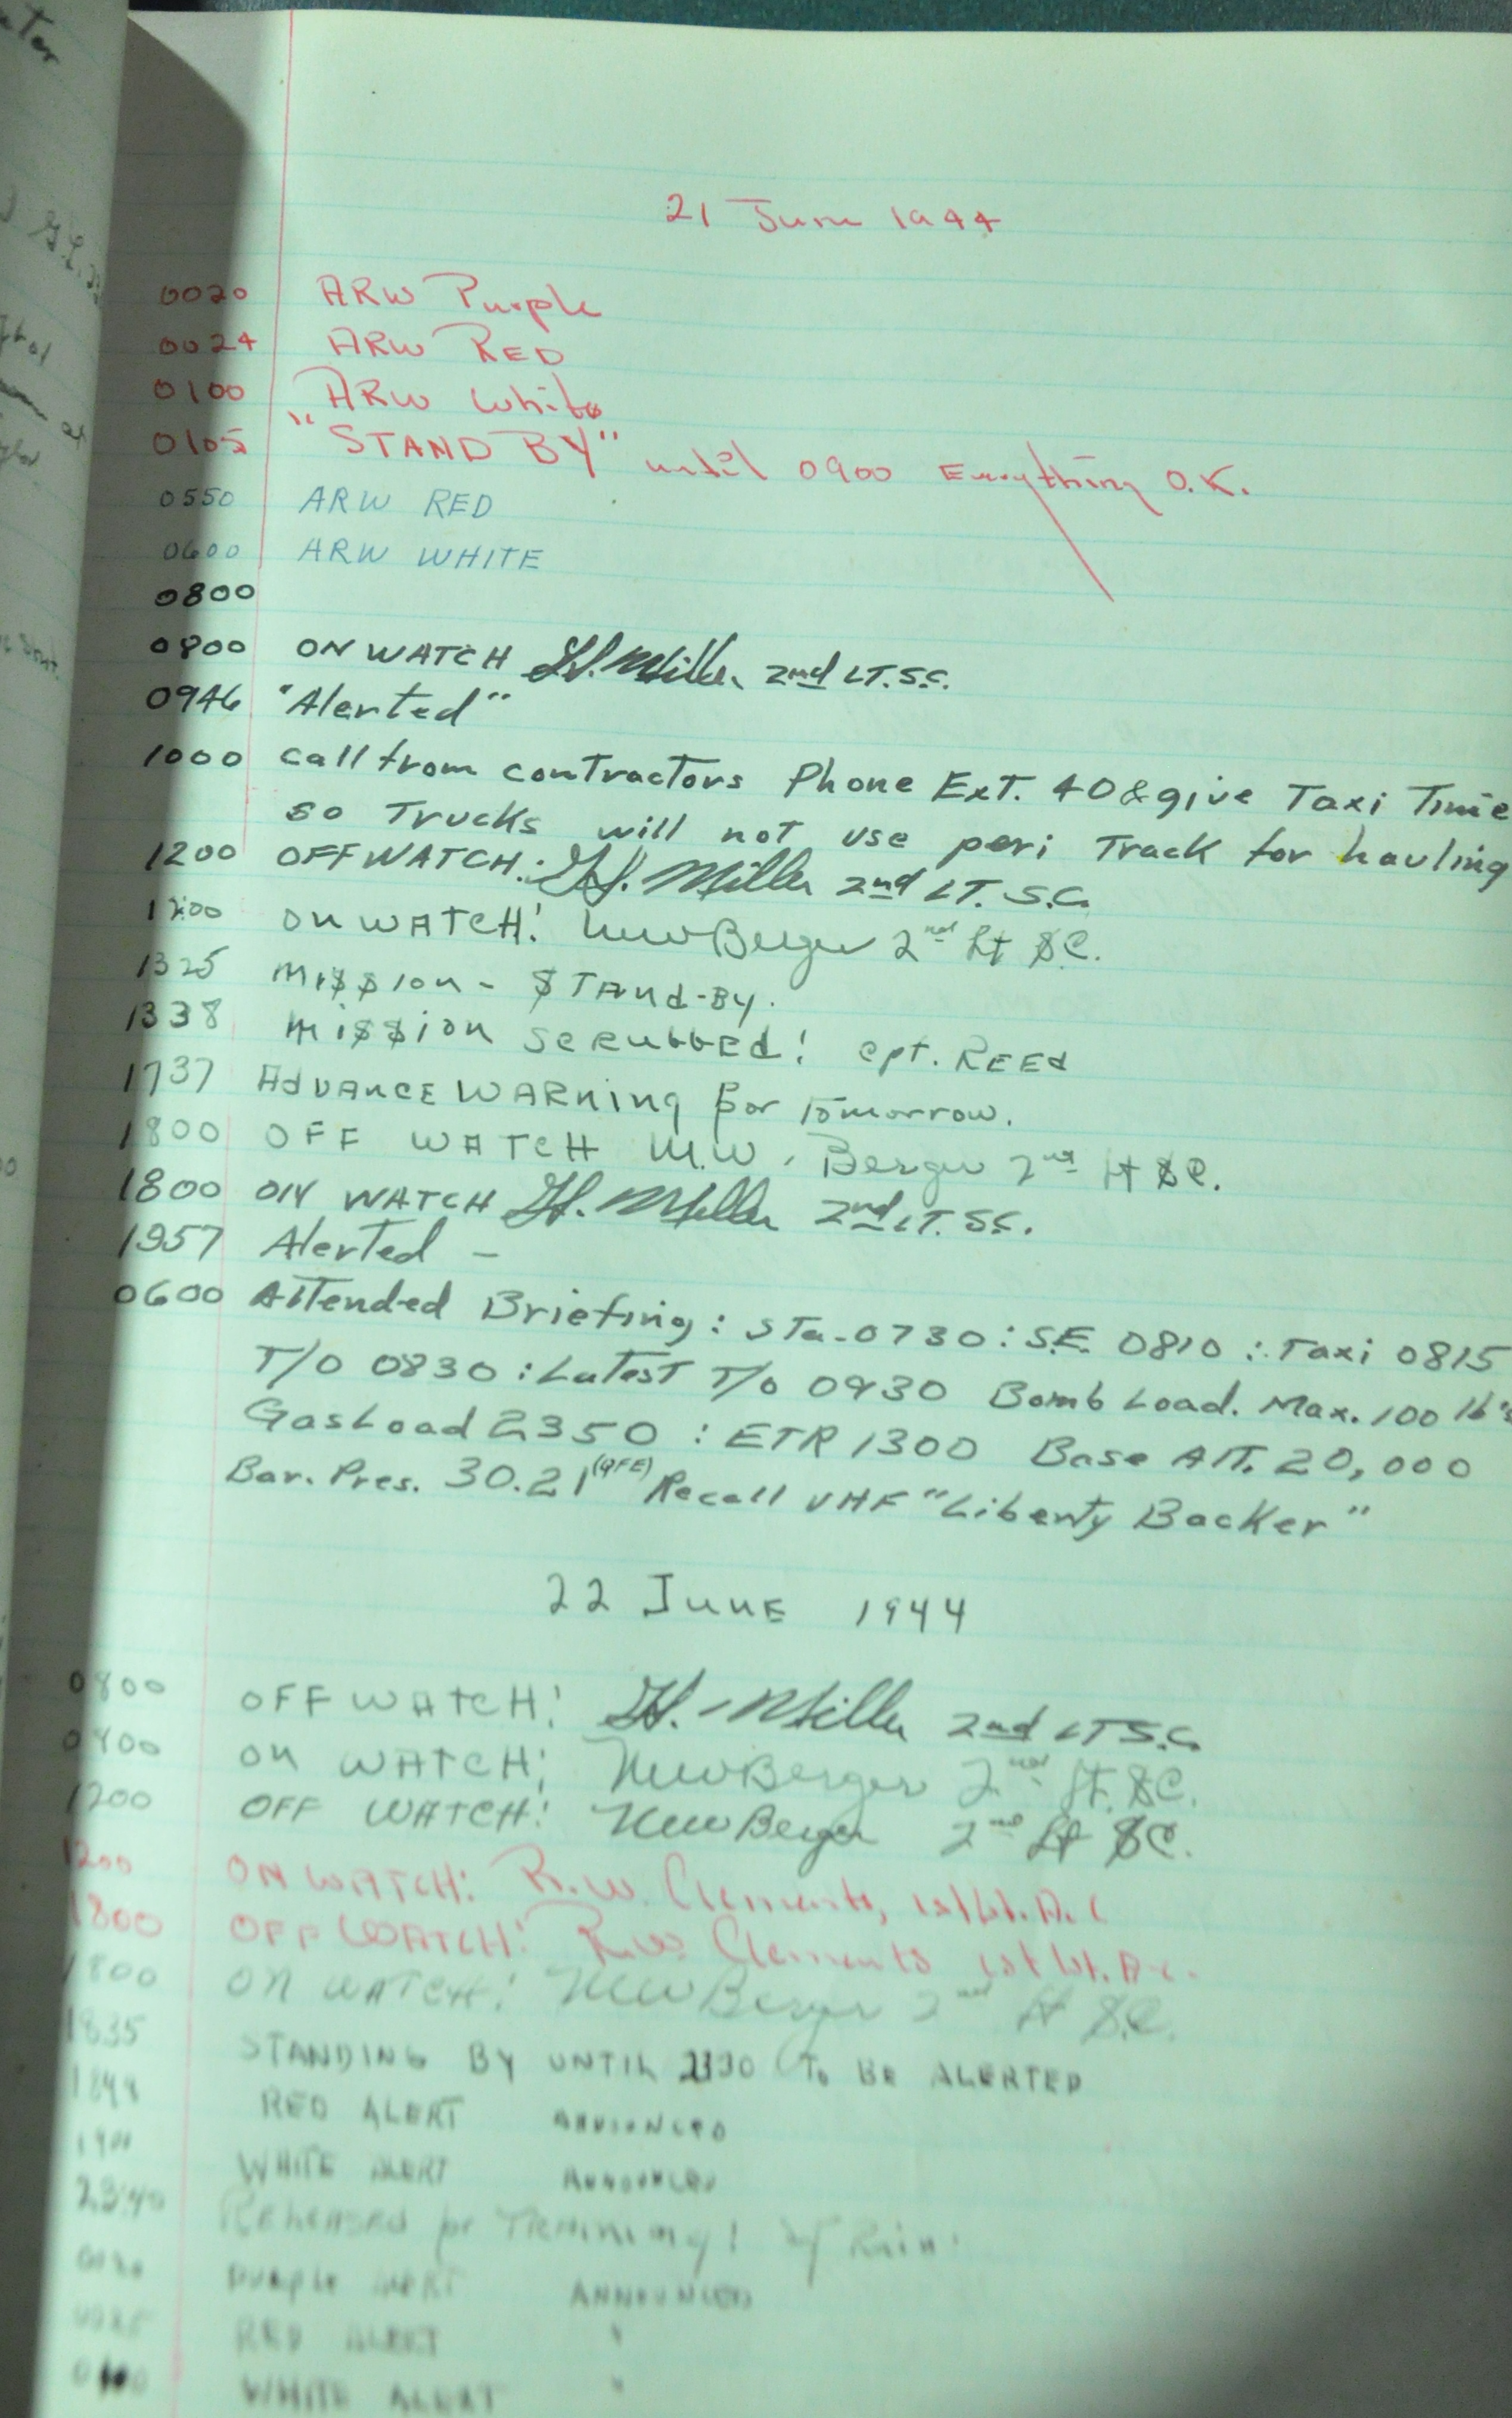 21 June 1944
0020 ARW Purple
0024 ARW RED
0100 ARW White
0105 "STAND BY" until 0900 Everything O.K.
0550 ARW RED
0600 ARW WHITE
0800
0800 ON WATCH H. Miller 2nd LT. S.C.
0946 "Alerted"
1000 call from contractors Phone Ext. 40 & give Taxi Time
so Trucks will not use peri Track for hauling
1200 OFF WATCH: H. Miller 2nd LT. S.C.
1200 ON WATCH! MW Berger 2nd Lt SC.
1325 Mission - STAnd-By.
1338 Mission SCRubbEd! cpt. REEd
1737 AdVAnCE WARning for Tomorrow.
1800 OFF WATCH M.W. Berger 2nd Lt SC.
1800 ON WATCH H. Miller 2nd LT. S.C.
1957 Alerted -
0600 Attended Briefing: STa-0730: S.E. 0810: Taxi 0815
T/O 0830: Latest T/O 0930 Bomb Load. Max. 100 lb's
Gas Load 2350: ETR 1300 Base Alt. 20,000
Bar. Pres. 30.21 (QFE) Recall VHF "Liberty Backer"
22 JUNE 1944
0800 OFF WATCH! H. Miller 2nd LT S.C.
0800 ON WATCH! MW Berger 2nd Lt. SC.
1200 OFF WATCH! MW Berger 2nd Lt SC.
1200 ON WATCH: R.W. Clements, 1st Lt. A.C
1800 OFF WATCH: R.W. Clements 1st Lt. A.C.
1800 ON WATCH! MW Berger 2nd Lt S.C.
1835 STANDING BY UNTIL 2330 To BE ALERTED
RED ALERT ANNOUNCED
WHITE ALERT ANNOUNCED
2340 RELEASED for TRAining!
PURPLE ALERT ANNOUNCED
RED ALERT "
WHITE ALERT "